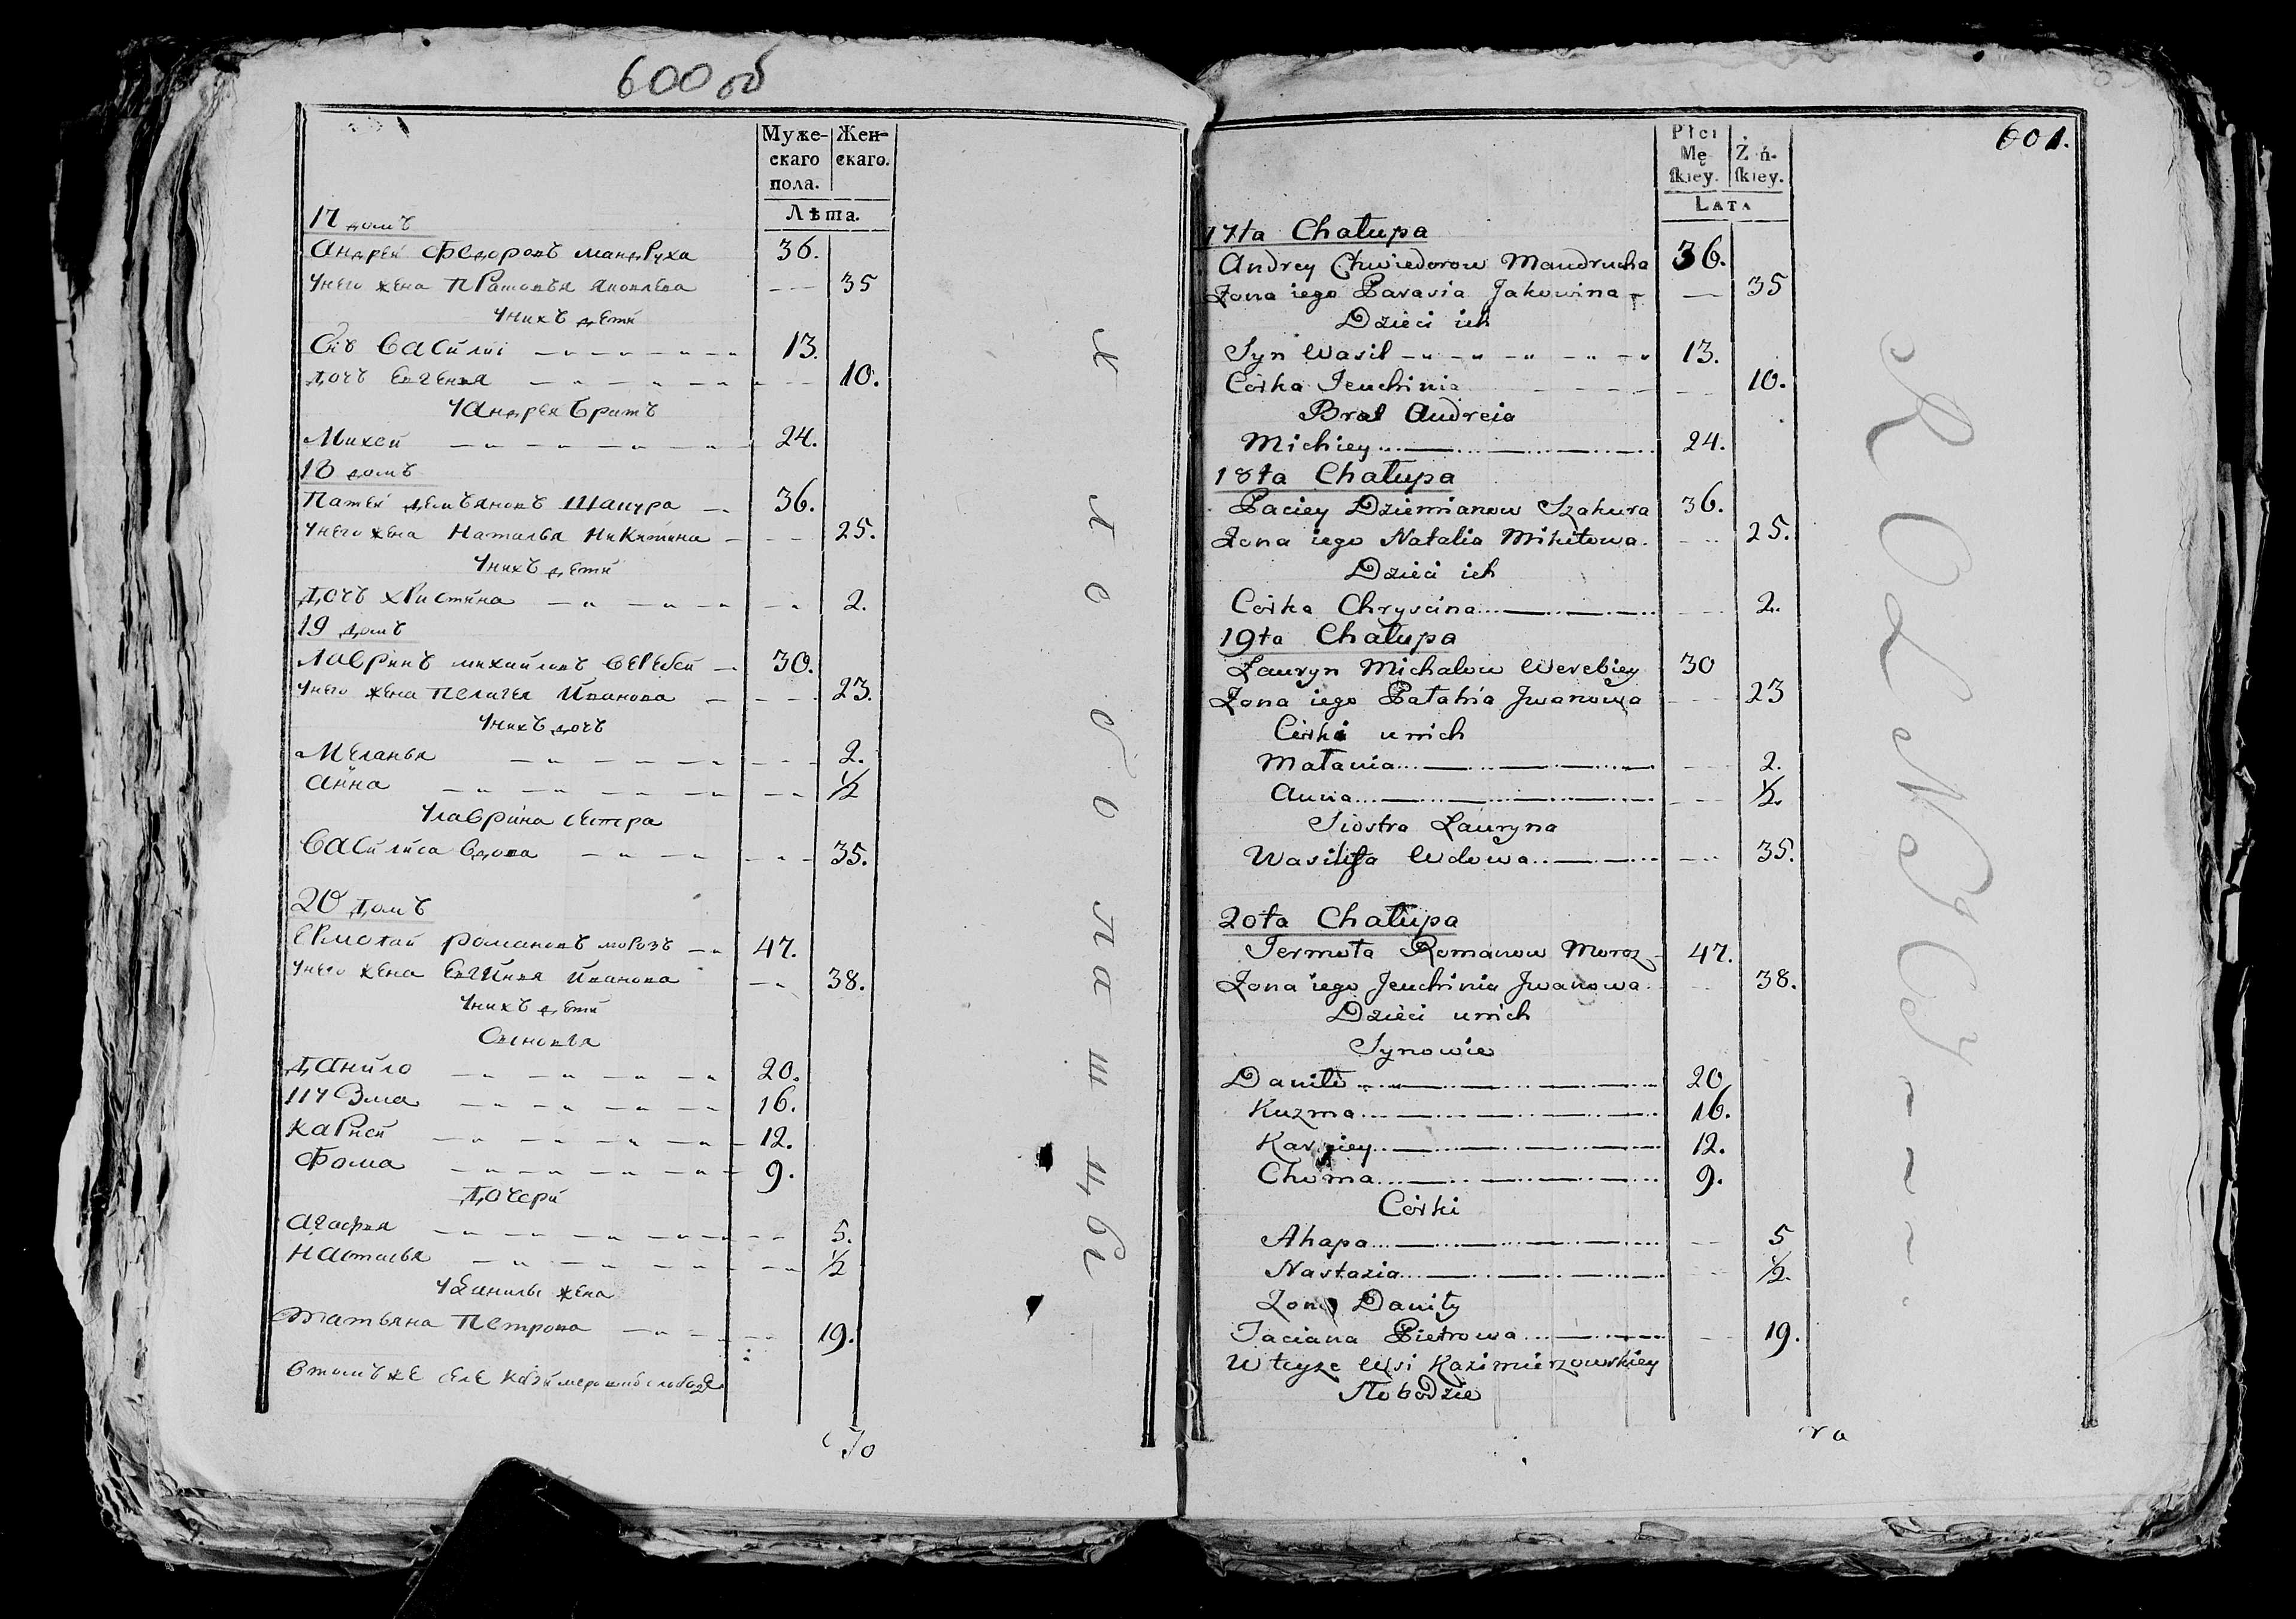 600 об
Муже- Жен-
скаго скаго.
пола.
Лѣта.
17 домъ
Андрей Федоровъ мандруха 36.
Унего жена Прасковья Яковлева 35
Унихъ дети
Сiнъ Василiй 13.
дочь Евгенья 10.
У Андрея братъ
Михей 24.
18 домъ
Патей демьяновъ Шакура 36.
Унего жена Наталья Никитина 25.
Унихъ дети
дочъ христина 2.
19 домъ
Лавринъ михайловъ веребей 30.
Унего жена Пелагея Иванова 23.
Унихъ дочь
Меланья 2.
Анна 1/2
У лаврина сестра
Василиса вдова 35.
20 домъ
Ермолай романовъ морозъ 47.
Унего жена Евгинья Иванова 38.
Унихъ дети
Сыновья
Данило 20.
Кузма 16.
Карней 12.
Фома 9.
дочери
Агафья 5.
Настасья 1/2
У данилы жена
Татьяна Петрова 19.
Втомъ же селе Казимеровской слободе
хлебопашцы
601.
Płci
Mę- Ż ń-
ſkiey. ſkiey.
LATA
17ta Chałupa
Andrey Chwiedorow Mandrucha 36.
Żona iego Parasia Jakowina 35
Dzieci ich
Syn Wasil 13.
Córka Jeuchinia 10.
Brat Andreia
Michiey 24.
18ta Chałupa
Paciey Dziemianow Szakura 36.
Żona iego Natalia Mikitowa 25.
Dzieci ich
Córka Chryscina 2.
19ta Chałupa
Łauryn Michałow Werebiey 30
Żona iego Pałahia Jwanowa 23
Córki unich
Małania 2.
Anna 1/2.
Siostra Łauryna
Wasilisa Wdowa 35.
20ta Chałupa
Jermoła Romanow Moroz 47.
Żona iego Jeuchinia Jwanowa 38.
Dzieci unich
Synowie
Daniło 20
Kuzma 16.
Karniey 12.
Choma 9.
Córki
Ahapa 5
Nastazia 1/2.
Żona Daniły
Taciana Pietrowa 19.
W teyże Wsi Kazimierzowskiey
Słobodzie
ra
ROLNYCY